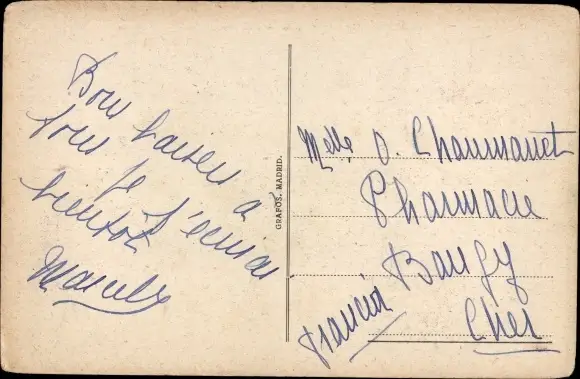 Bons baisers à
tous je t'écrirai
bientôt
Marcelle
GRAFOS. MADRID.
Melle O. Chaumanet
Pharmacie
Baugy
Cher
Francia